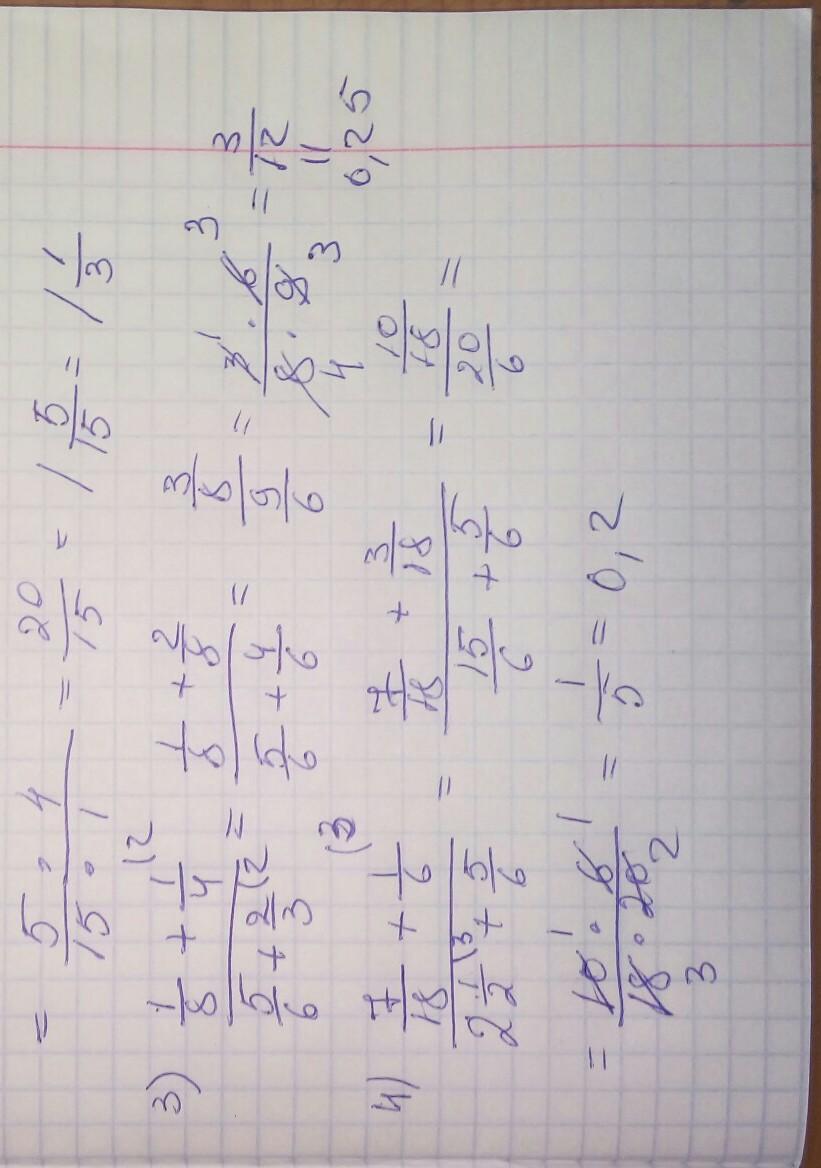 = (5 · 4)/(15 · 1) = 20/15 = 1 5/15 = 1 1/3
3) (1/8 + 1/4 (2)/(5/6 + 2/3 (2) = (1/8 + 2/8)/(5/6 + 4/6) = (3/8)/(9/6) = (3 1 · 6 3)/(8 4 · 9 3) = 3/12 = 0,25
4) (7/18 + 1/6 (3)/(2 1/2 (3 + 5/6) = (7/18 + 3/18)/(15/6 + 5/6) = (10/18)/(20/6) =
= (10 1 · 6 1)/(18 3 · 20 2) = 1/5 = 0,2